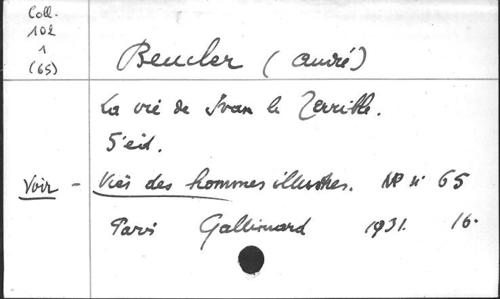 Coll.
102
1
(65)
Beucler (André)
La vie de Ivan le Terrible.
5e éd.
Voir - Vies des hommes illustres. N° 65
Paris Gallimard 1931. 16.